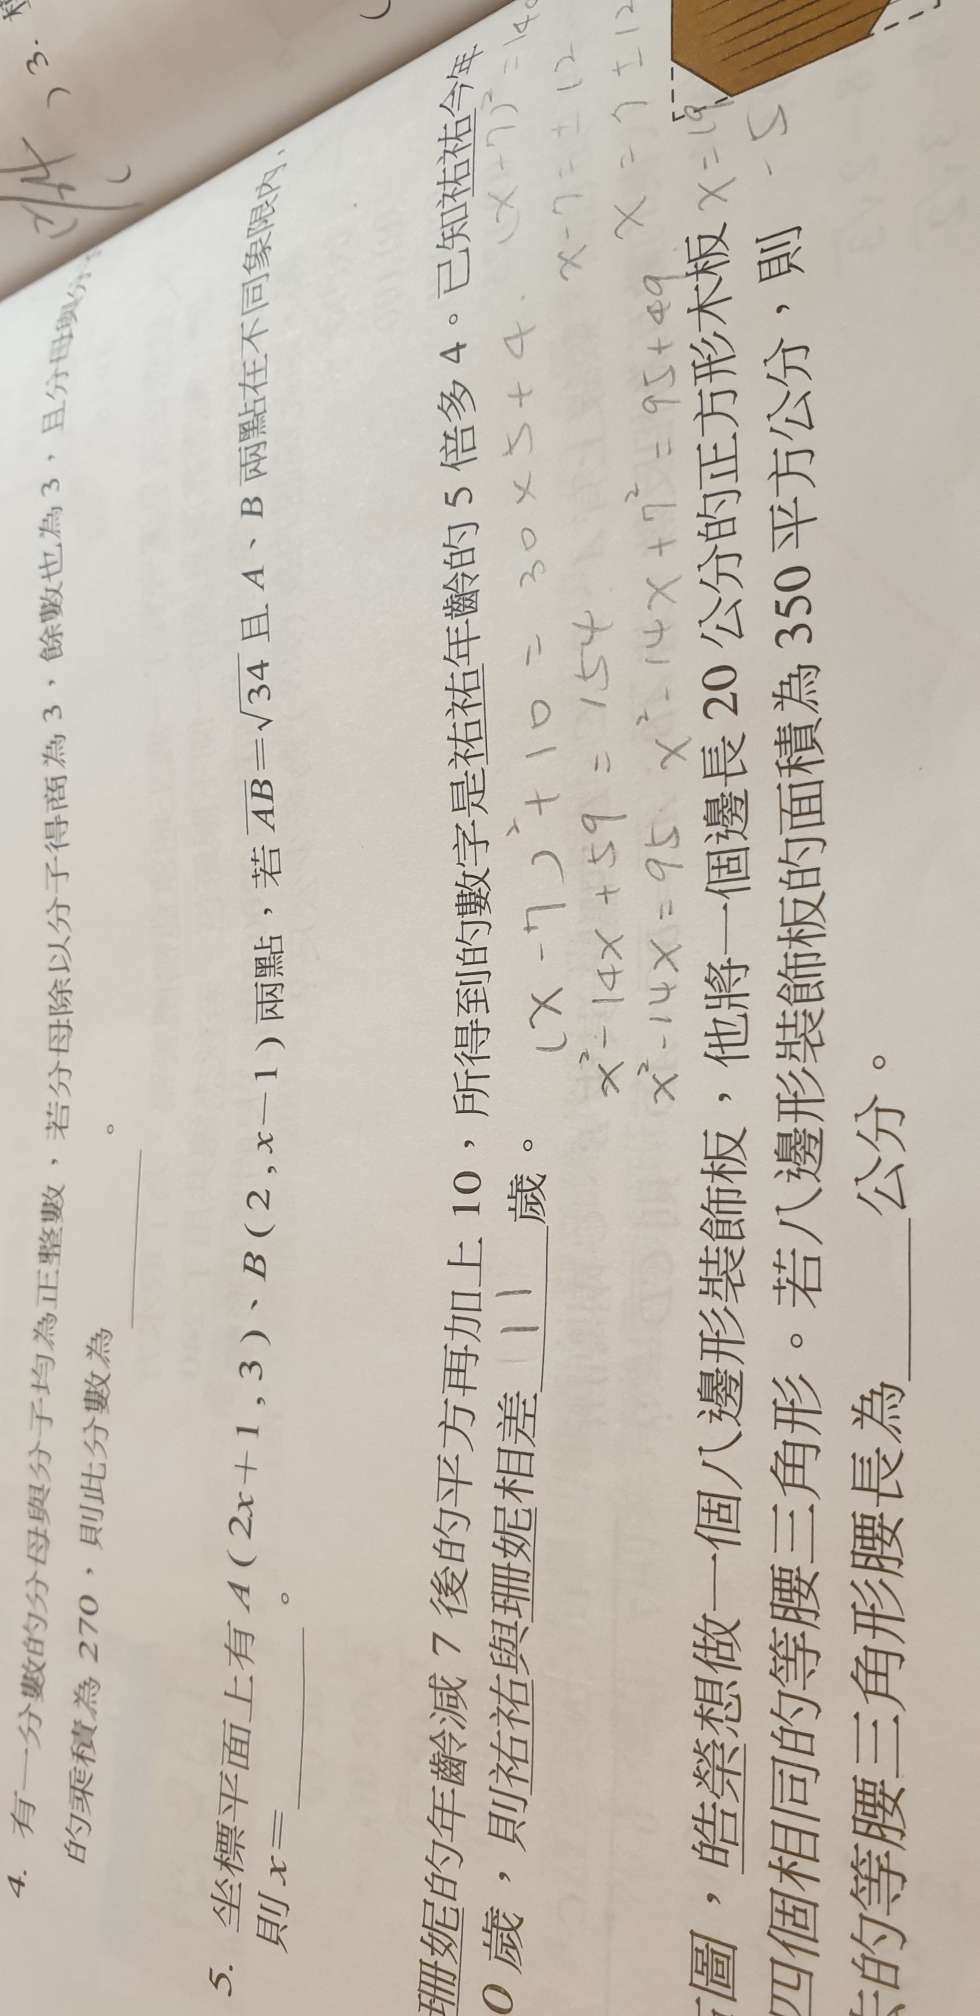 3.
4. 有一分數的分母與分子均為正整數,若分母除以分子得商為3,餘數也為3,且分母與分子
的乘積為270,則此分數為 。
5. 坐標平面上有A(2x+1,3)、B(2,x-1)兩點,若AB=√34且A、B兩點在不同象限內,
則x= 。
珊妮的年齡減7後的平方再加上10,所得到的數字是祐祐年齡的5倍多4。已知祐祐今年
0歲,則祐祐與珊妮相差 11 歲。
(x-7)²+10=30×5+4
x²-14x+59=154
x²-14x=95
x²-14x+7²=95+49
(x+7)²=14
x-7=±12
x=7±12
x=19
-5
圖,皓榮想做一個八邊形裝飾板,他將一個邊長20公分的正方形木板
四個相同的等腰三角形。若八邊形裝飾板的面積為350平方公分,則
的等腰三角形腰長為 公分。